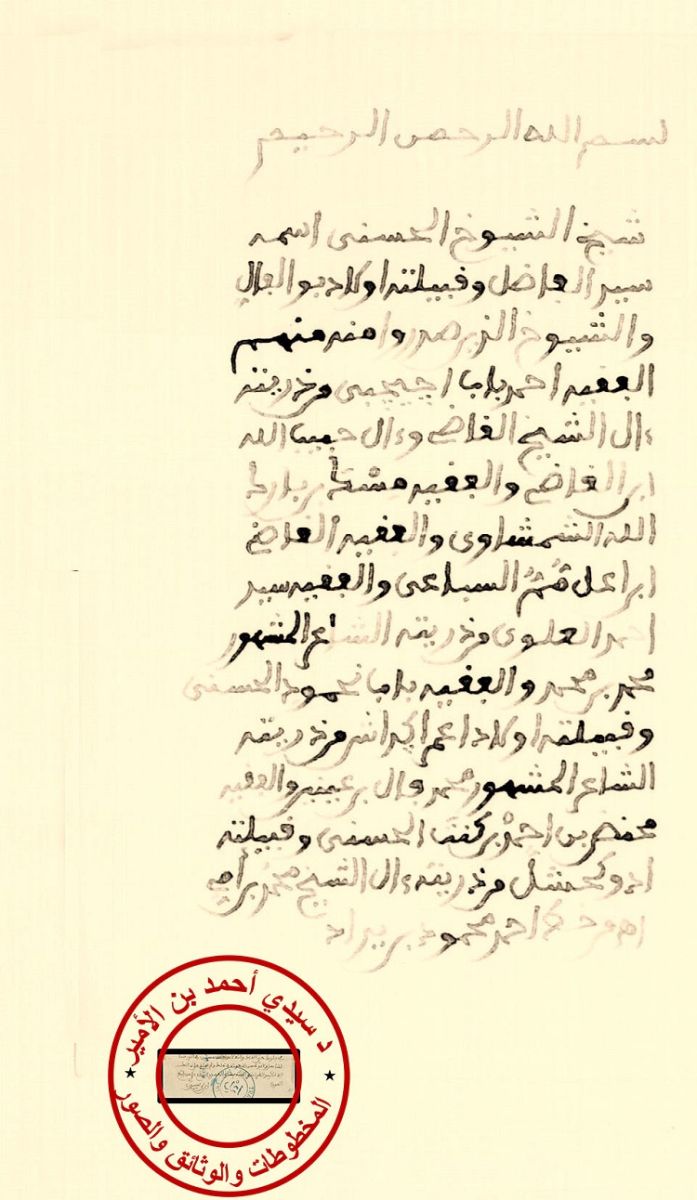 بسم الله الرحمن الرحيم
شيخ الشيوخ الحسنى اسمه
سيد الفاضل وقبيلته اولاد بو الفال
والشيوخ الذين صدروا منه منهم
الفقيه احمد باب اجيجبى من ذريته
ءال الشيخ القاضى وءال حبيب الله
ابن القاضى والفقيه بن بارك
الله الشمشاوى والفقيه القاضى
ابن اعل مم السباعى والفقيه سيد
احمد العلوى من ذريته الشاعر المشهور
محمد بن محمد والفقيه باب محمود الحسنى
وقبيلته اولاد من ذريته
الشاعر المشهور محمد فال بن عينين والفقيه
محنض بن احمد بن الحسنى وقبيلته
ادو من ذريته ءال الشيخ محمد بن
احمد محمود بن
د سيدي أحمد بن الأمير
المخطوطات والوثائق والصور